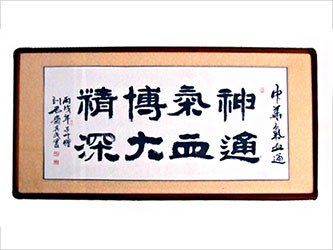 中華氣血通
神通
氣血
博大
精深
丙戌年